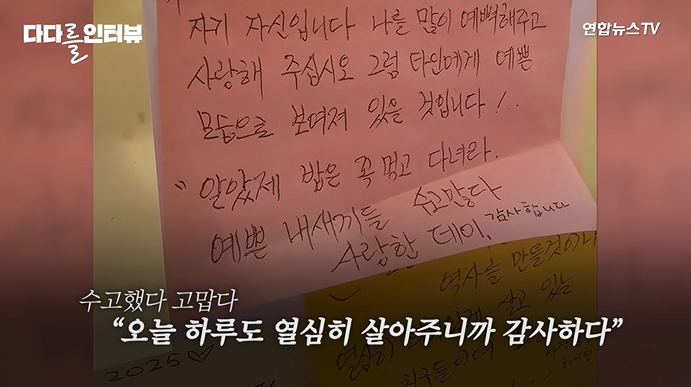 다다를인터뷰
연합뉴스TV
자기 자신입니다 나를 많이 예뻐해주고
사랑해 주십시오 그럼 타인에게 예쁜
모습으로 보여져 있을 것입니다!...
"알았제 밥은 꼭 먹고 다녀라.
예쁜 내새끼들 수고많다
사랑한 데이, 감사합니다
역사을 만들것이
살고 있는
열심히
친구들이여
2025♡
수고했다 고맙다
“오늘 하루도 열심히 살아주니까 감사하다”